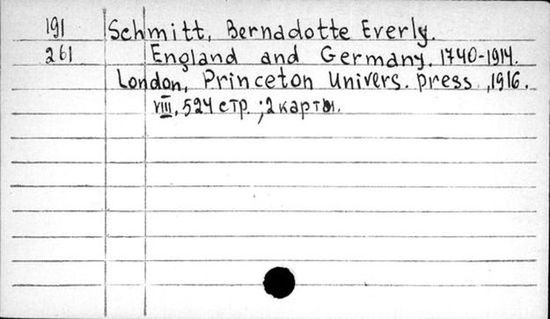 191 Schmitt, Bernadotte Everly.
261 England and Germany, 1740-1914.
London, Princeton Univers. press, 1916.
VIII, 524 стр. ; 2 карты.